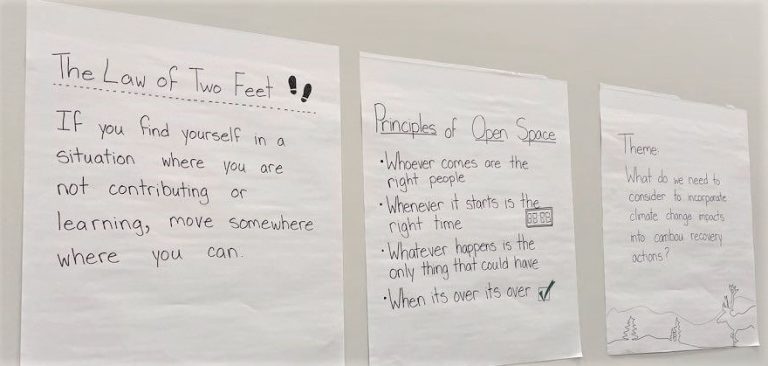 The Law of Two Feet
If you find yourself in a
situation where you are
not contributing or
learning, move somewhere
where you can.
Principles of Open Space
• Whoever comes are the
right people
• Whenever it starts is the
right time
• Whatever happens is the
only thing that could have
• When its over its over
Theme:
What do we need to
consider to incorporate
climate change impacts
into caribou recovery
actions?